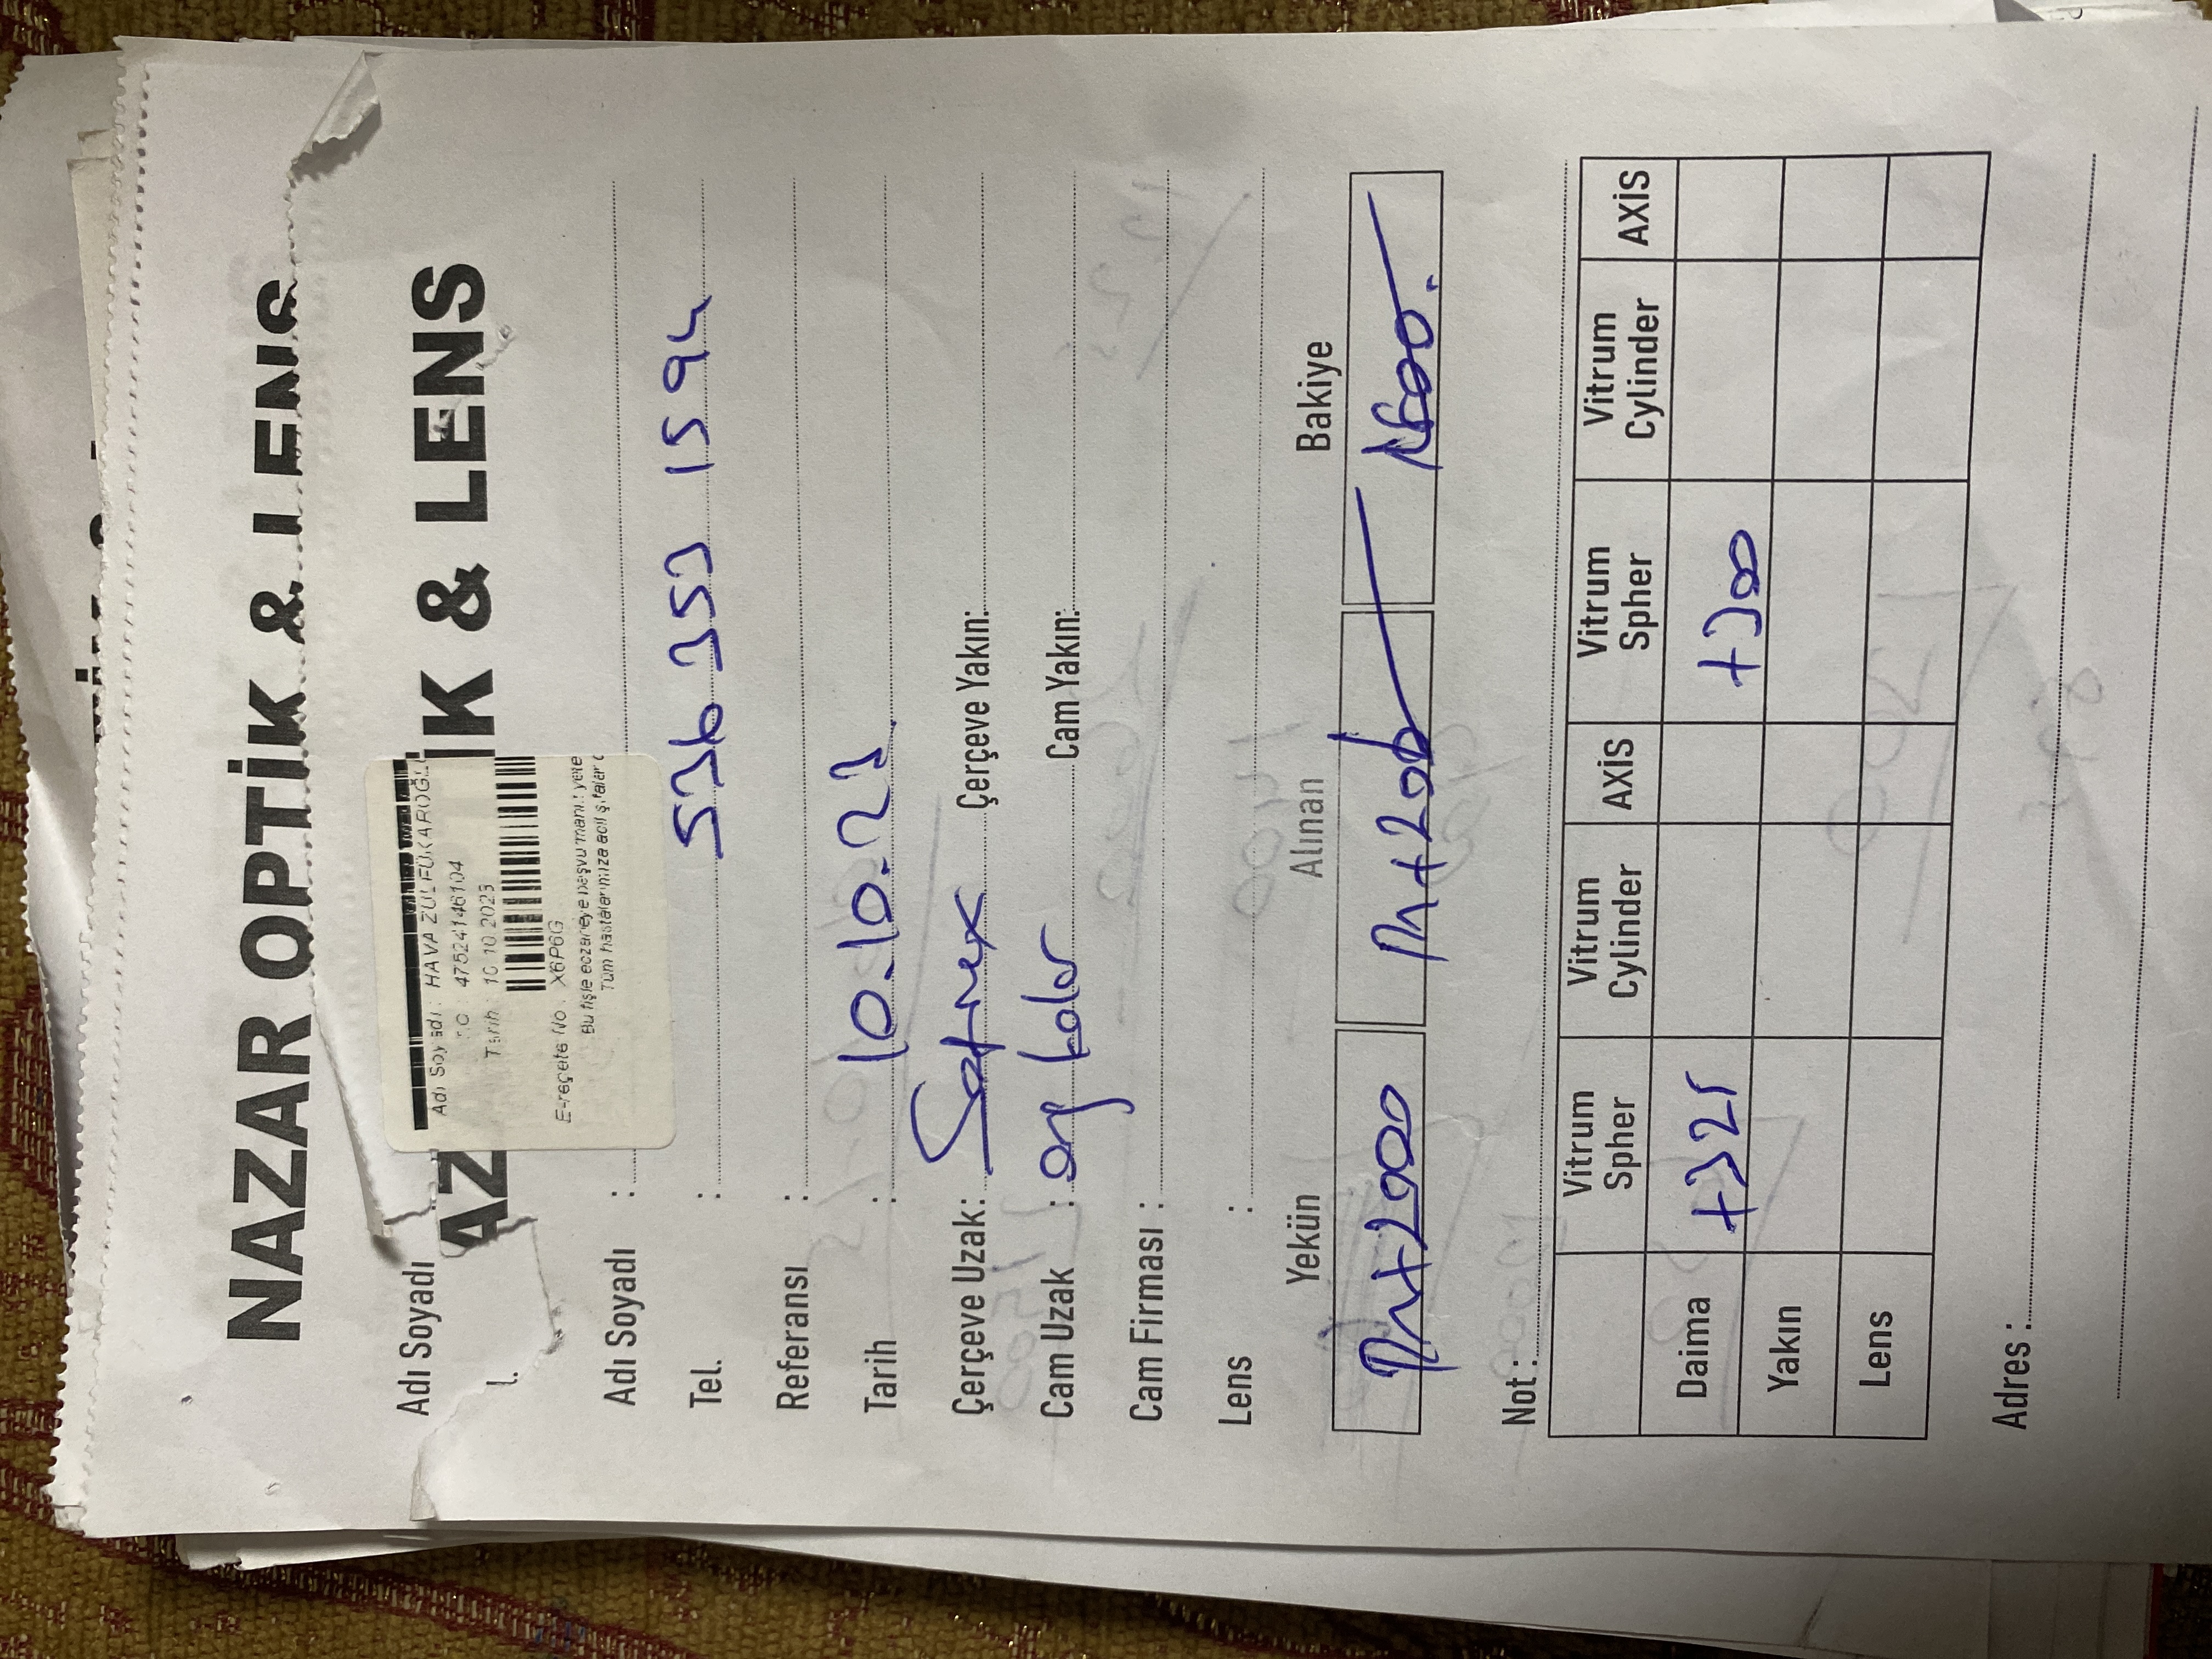 NAZAR OPTİK & LENS
Adı Soyadı
AZ İK & LENS
Adı Soyadı : HAVA ZÜLFÜKAROĞLU
47524146104
Tarih : 10 10 2023
E-reçete No : X6P6G
Bu fişle eczaneye başvurmanız yete
Tüm hastalarımıza acil şifalar d
Adı Soyadı :
Tel. : 536 353 1594
Referansı :
Tarih : 10.10.23.
Çerçeve Uzak: Çerçeve Yakın:
Cam Uzak : org kolor Cam Yakın:
Cam Firması :
Lens :
Yekün Alınan Bakiye
+2000 +200 1800.
Not :
Vitrum Spher Vitrum Cylinder AXİS Vitrum Spher Vitrum Cylinder AXİS
Daima +325 +300
Yakın
Lens
Adres :